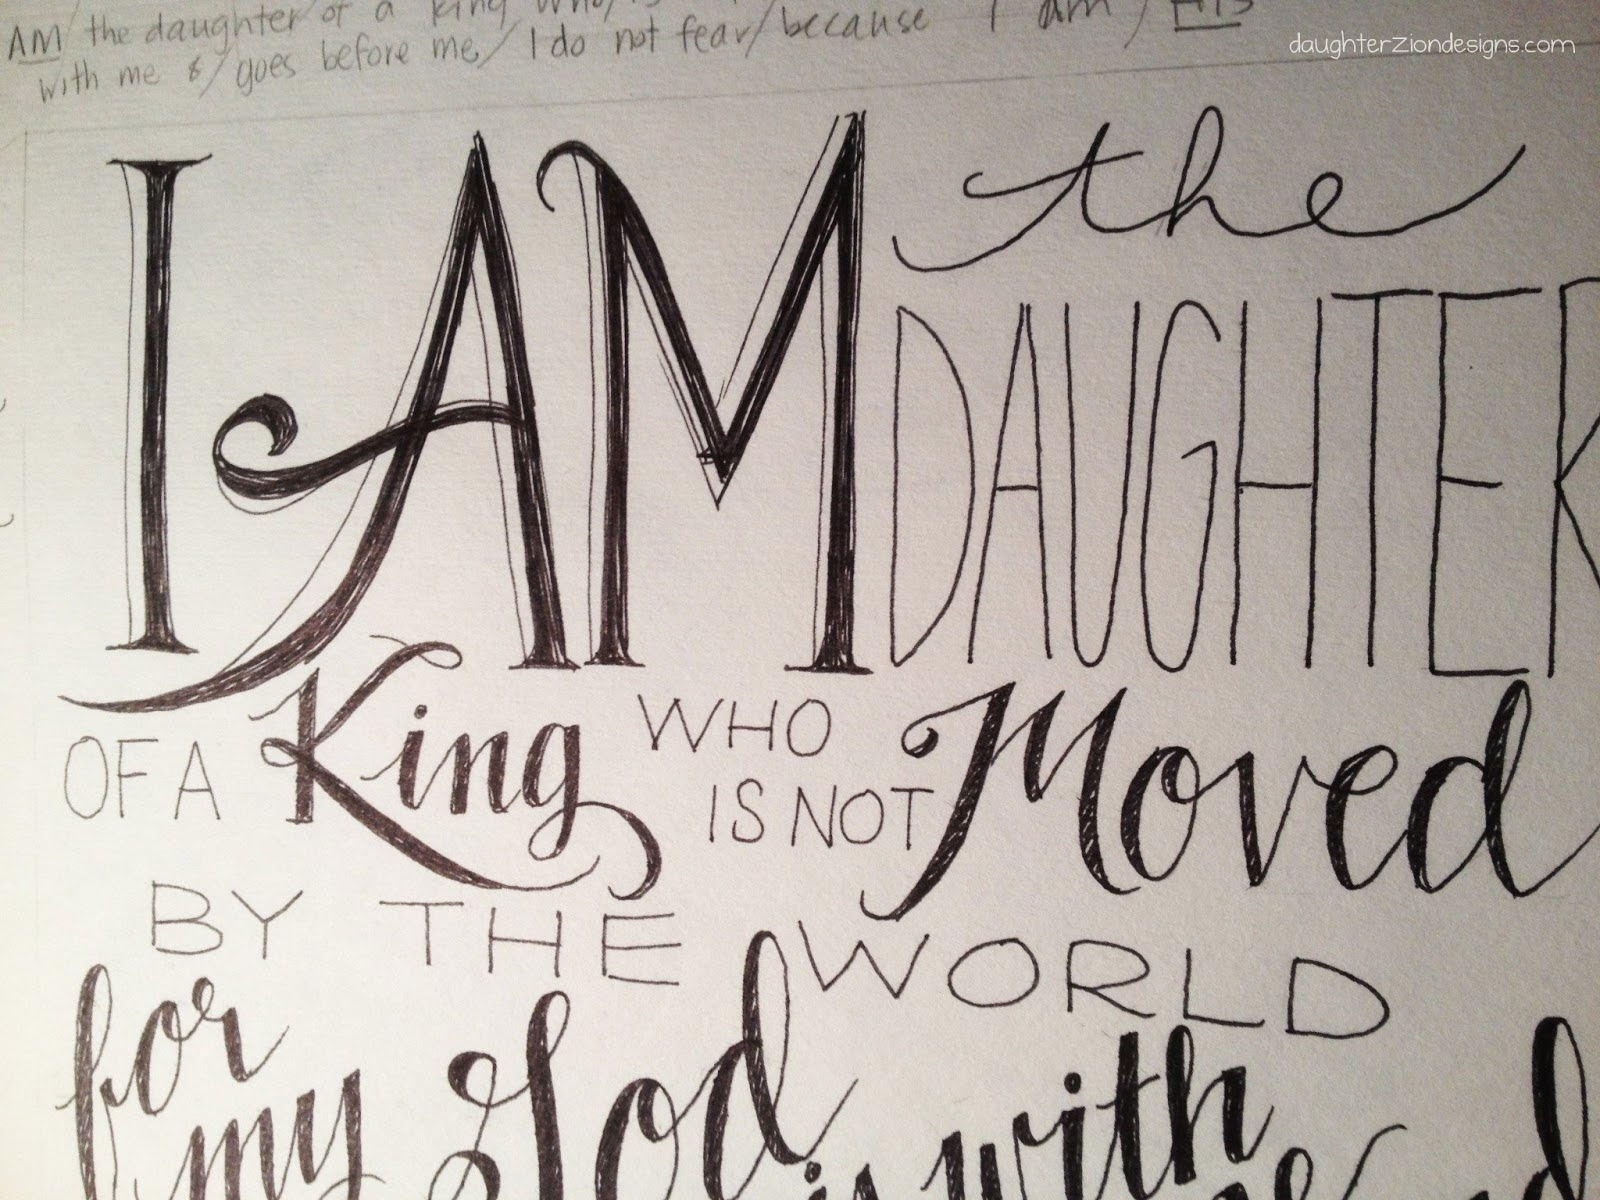 AM/the daughter of a king who/
with me &/goes before me,/I do not fear/because I am/His
daughterZiondesigns.com
I AM the
DAUGHTER
OF A King WHO
IS NOT Moved
BY THE WORLD
for
my God
is with